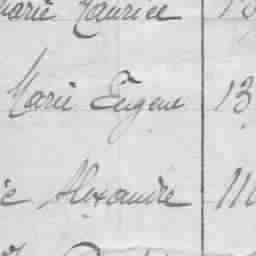 Marie Maurice
Marie Eugene 13
Alexandre 11